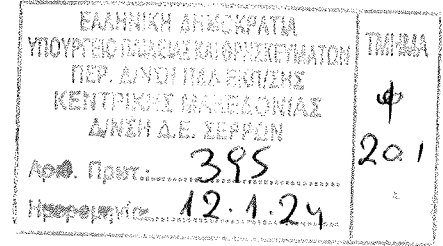 ΕΛΛΗΝΙΚΗ ΔΗΜΟΚΡΑΤΙΑ
ΥΠΟΥΡΓΕΙΟ ΠΑΙΔΕΙΑΣ ΚΑΙ ΘΡΗΣΚΕΥΜΑΤΩΝ
ΠΕΡ. Δ/ΝΣΗ Π&Δ ΕΚΠ/ΣΗΣ
ΚΕΝΤΡΙΚΗΣ ΜΑΚΕΔΟΝΙΑΣ
Δ/ΝΣΗ Δ.Ε. ΣΕΡΡΩΝ
Αριθ. Πρωτ.: 395
Ημερομηνία 12.1.24
ΤΜΗΜΑ
Φ
20.1